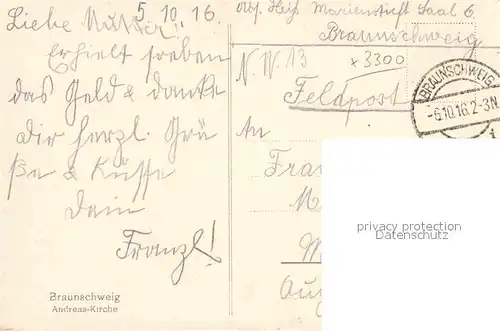 5. 10. 16.
Liebe Mutter!
Erhielt soeben
das Geld & danke
Dir herzl. Grü
ße & Küsse
Dein
Franzl!
Braunschweig
Andreas-Kirche
Marienstift Saal 6.
Braunschweig
N. W. 13
x3300
Feldpost
An
BRAUNSCHWEIG
-6.10.16.2-3N
1
privacy protection
Datenschutz